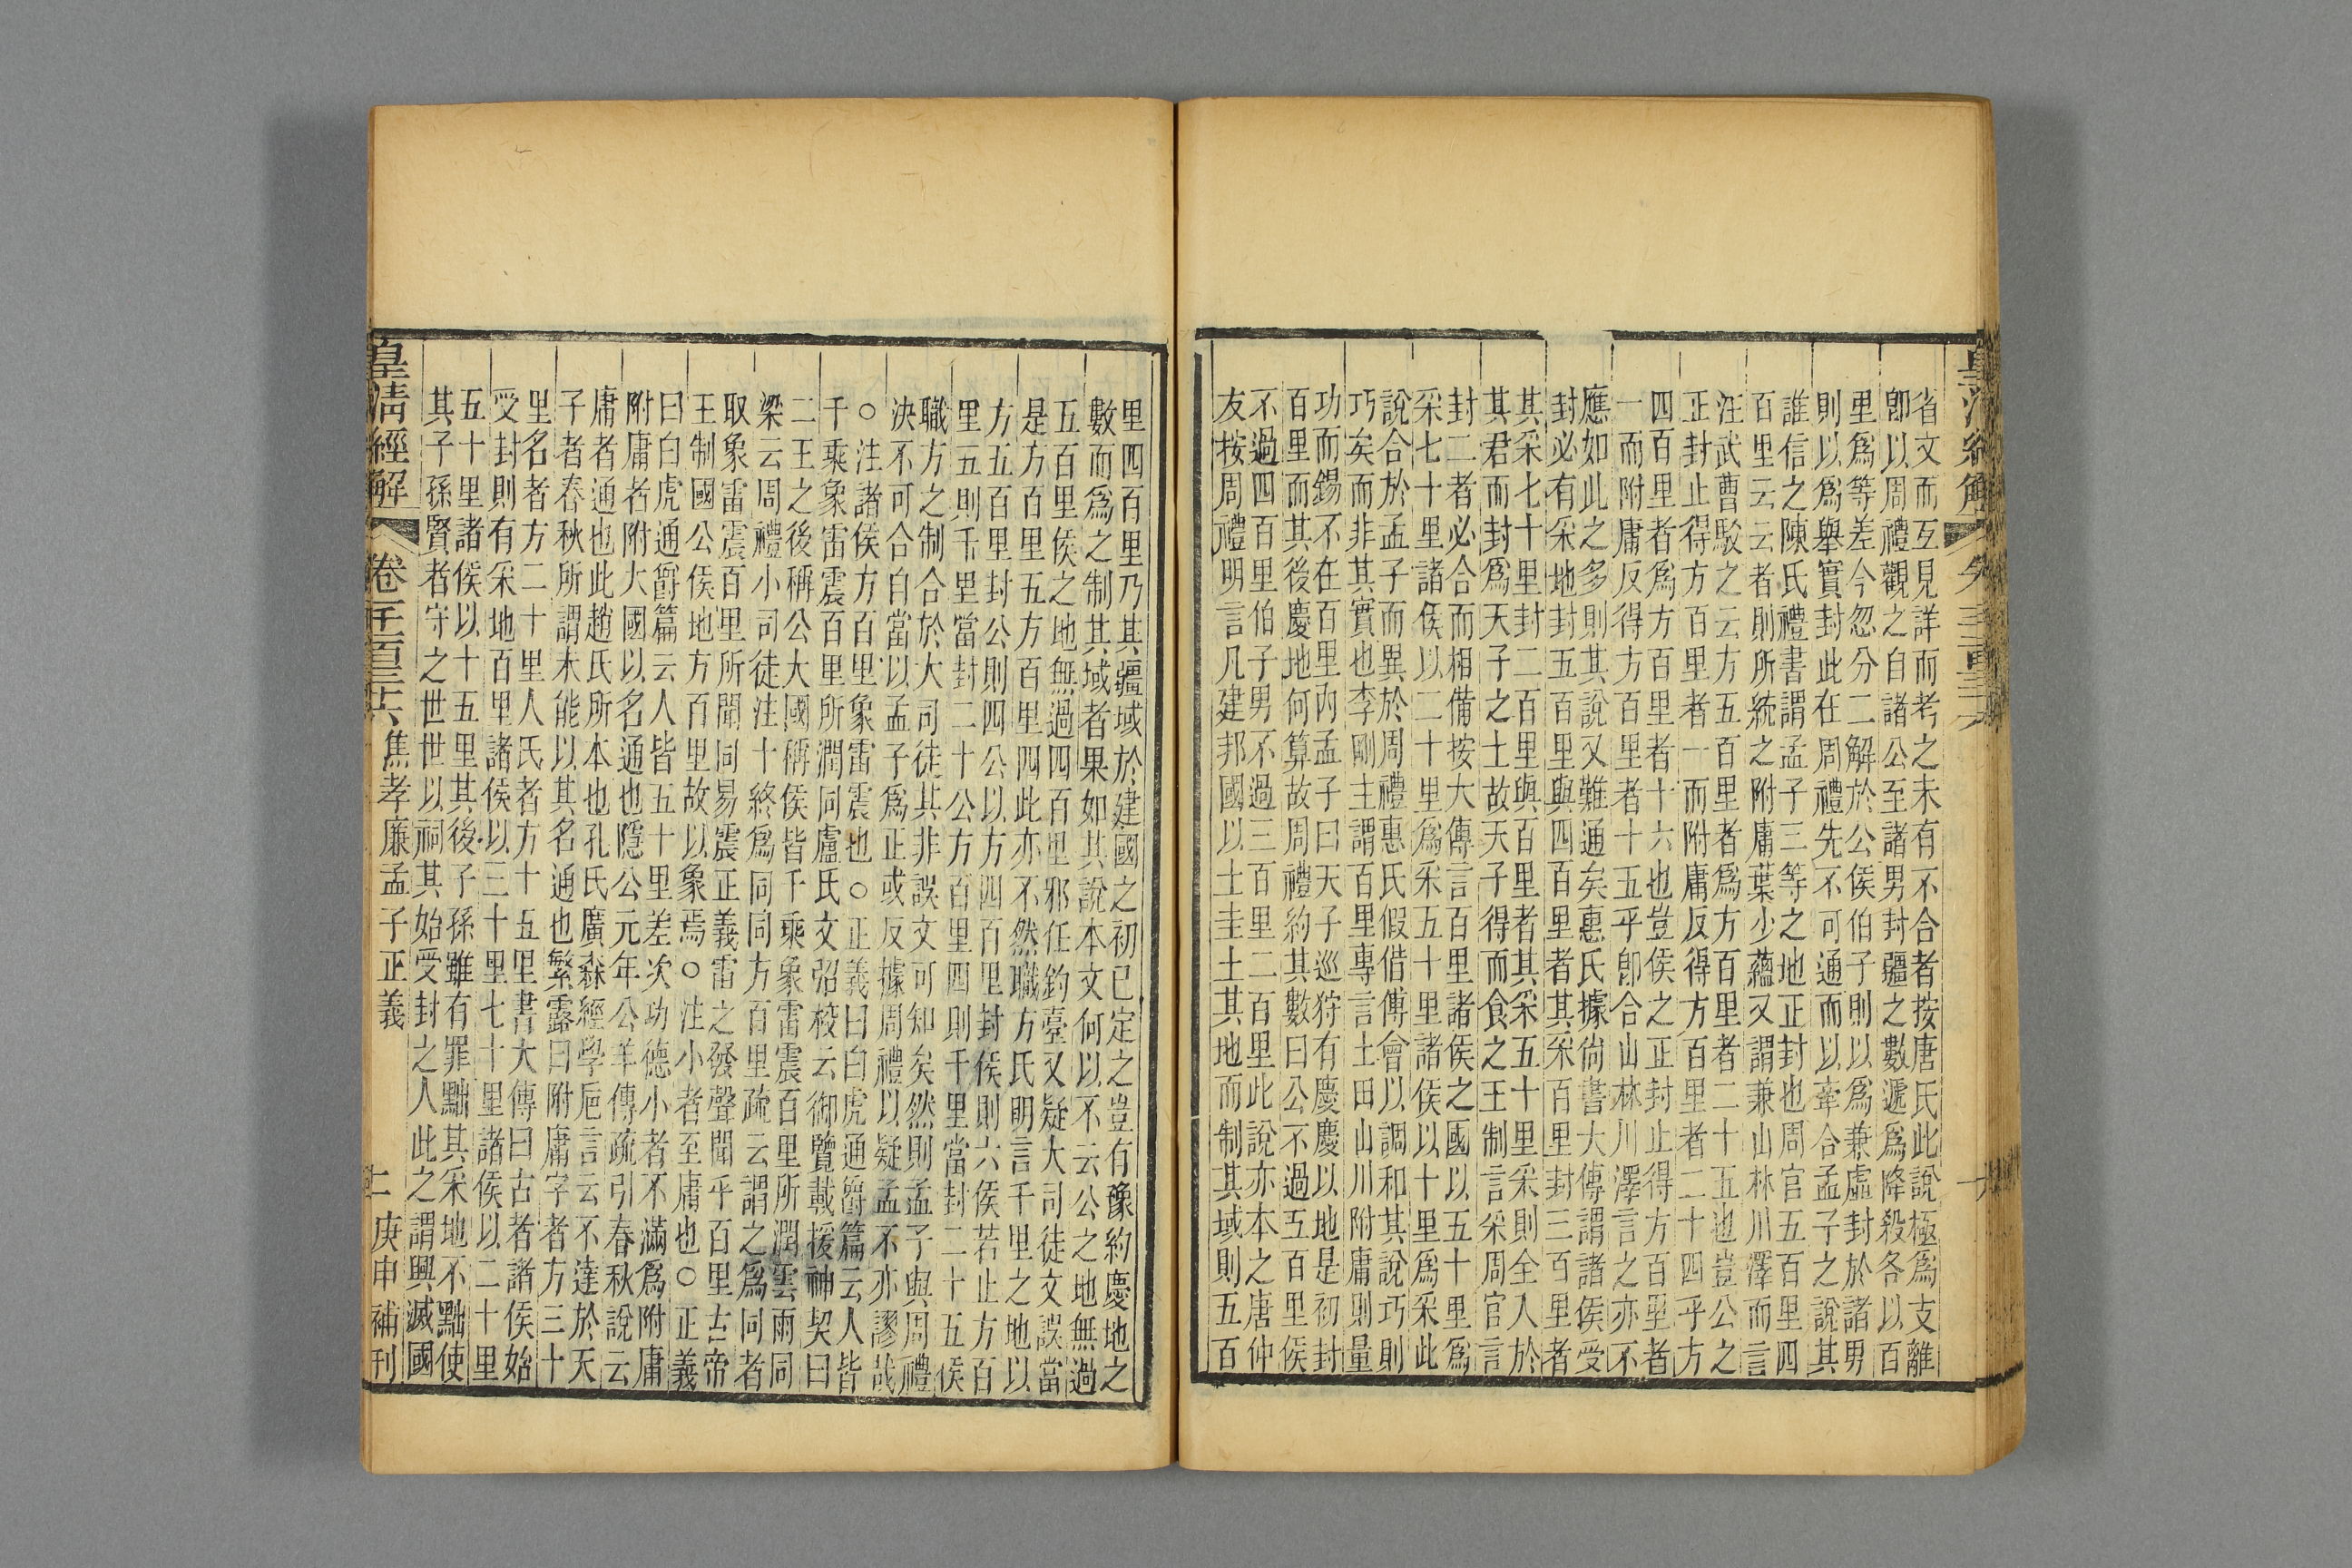 省文而互見詳而考之未有不合者按唐氏此說極爲支離
卽以周禮觀之自諸公至諸男封疆之數遞爲降殺各以百
里爲等差今忽分二解於公侯伯子則以爲兼虛封於諸男
則以爲舉實封此在周禮先不可通而以牽合孟子之說其
誰信之陳氏禮書謂孟子三等之地正封也周官五百里四
百里云云者則所統之附庸葉少蘊又謂兼山林川澤而言
汪武曹駁之云方五百里者爲方百里者二十五也豈公之
正封止得方百里者一而附庸反得方百里者二十四乎方
四百里者爲方百里者十六也豈侯之正封止得方百里者
一而附庸反得方百里者十五乎卽合山林川澤言之亦不
應如此之多則其說又難通矣惠氏據尙書大傳謂諸侯受
封必有采地封五百里與四百里者其采百里封三百里者
其采七十里封二百里與百里者其采五十里采則全入於
其君而封爲天子之土故天子得而食之王制言采周官言
封二者必合而相備按大傳言百里諸侯之國以五十里爲
采七十里諸侯以二十里爲采五十里諸侯以十里爲采此
說合於孟子而異於周禮惠氏假借傅會以調和其說巧則
巧矣而非其實也李剛主謂百里專言土田山川附庸則量
功而錫不在百里內孟子曰天子巡狩有慶慶以地是初封
百里而其後慶地何算故周禮約其數曰公不過五百里侯
不過四百里伯子男不過三百里二百里此說亦本之唐仲
友按周禮明言凡建邦國以土圭土其地而制其域則五百
里四百里乃其疆域於建國之初已定之豈有豫約慶地之
數而爲之制其域者果如其說本文何以不云公之地無過
五百里侯之地無過四百里邪任鈞臺又疑大司徒文誤當
是方百里五方百里四此亦不然職方氏明言千里之地以
方五百里封公則四公以方四百里封侯則六侯若止方百
里五則千里當封二十公方百里四則千里當封二十五侯
職方之制合於大司徒其非誤文可知矣然則孟子與周禮
決不可合自當以孟子爲正或反據周禮以疑孟不亦謬哉
○注諸侯方百里象雷震也○正義曰白虎通爵篇云人皆
千乘象雷震百里所潤同盧氏文弨校云御覽載援神契曰
二王之後稱公大國稱侯皆千乘象雷震百里所潤雲雨同
梁云周禮小司徒注十終爲同同方百里疏云謂之爲同者
取象雷震百里所聞同易震正義雷之發聲聞乎百里古帝
王制國公侯地方百里故以象焉○注小者至庸也○正義
曰白虎通爵篇云人皆五十里差次功德小者不滿爲附庸
附庸者附大國以名通也隱公元年公羊傳疏引春秋說云
庸者通也此趙氏所本也孔氏廣森經學卮言云不達於天
子者春秋所謂未能以其名通也繁露曰附庸字者方三十
里名者方二十里人氏者方十五里書大傳曰古者諸侯始
受封則有采地百里諸侯以三十里七十里諸侯以二十里
五十里諸侯以十五里其後子孫雖有罪黜其采地不黜使
其子孫賢者守之世世以祠其始受封之人此之謂興滅國
皇淸經解 卷一千一百三十六 焦孝廉孟子正義 二 庚申補刊